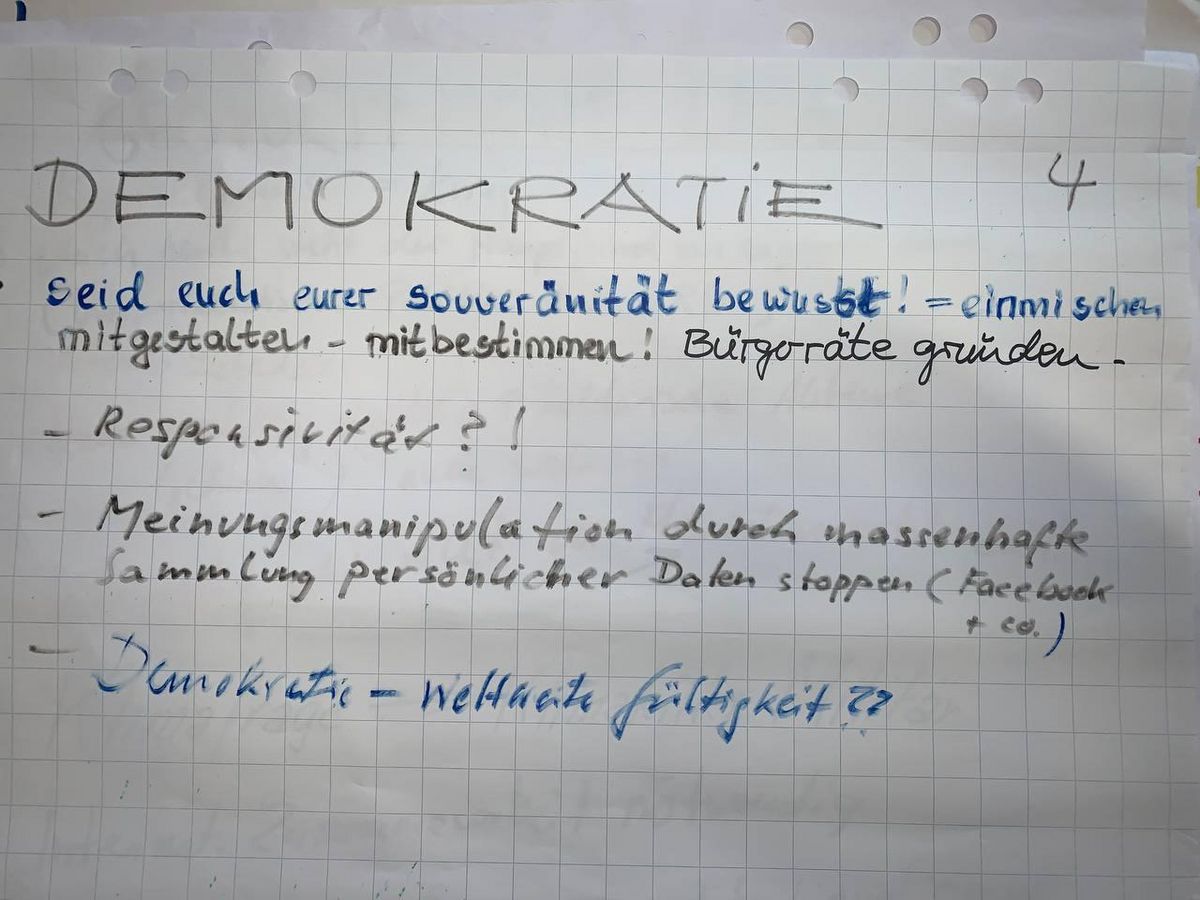 DEMOKRATiE 4
• seid euch eurer souveränität bewusst! = einmischen
mitgestalten - mitbestimmen! Bürgeräte gründen -
- Responsivität?!
- Meinungsmanipulation durch massenhafte
Sammlung persönlicher Daten stoppen (Facebook
+ co.)
- Demokratie - weltweite Gültigkeit??